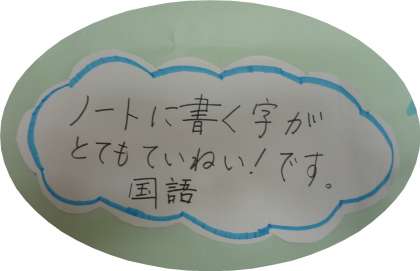 ノートに書く字が
とてもていねい!です。
国語